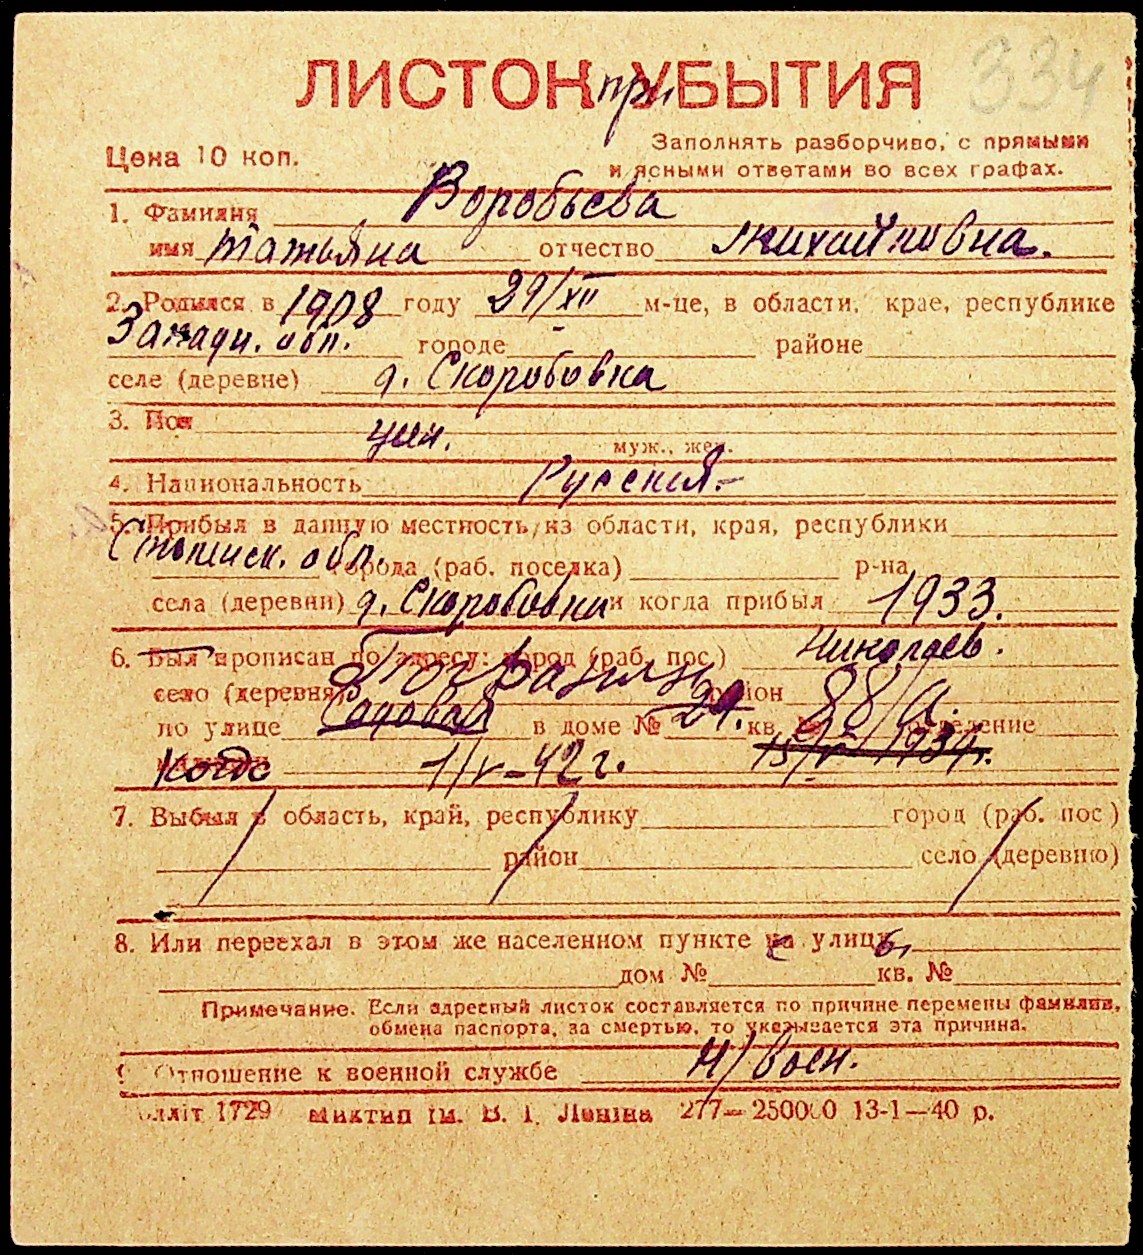 334
ЛИСТОК при УБЫТИЯ
Цена 10 коп.
Заполнять разборчиво, с прямыми
и ясными ответами во всех графах.
1. Фамилия Воробьева
имя Татьяна отчество Михайловна.
2. Родился в 1908 году 29/XII м-це, в области, крае, республике
Западн. обл. городе районе
селе (деревне) д. Скоробовка
3. Пол жен. муж., жен.
4. Национальность Русская
5. Прибыл в данную местность из области, края, республики
обл. города (раб. поселка) р-на
села (деревни) д. Скоробовка и когда прибыл 1933.
6. Был прописан по адресу: город (раб. пос.) Николаев.
село (деревня) район
по улице Садовая в доме № 29. кв. № 88/а. отделение
когда 1/V-42 г. 15/V 1934.
7. Выбыл в область, край, республику город (раб. пос)
район село (деревню)
8. Или переехал в этом же населенном пункте с улицы
дом № кв. №
Примечание. Если адресный листок составляется по причине перемены фамилии,
обмена паспорта, за смертью, то указывается эта причина.
Отношение к военной службе Н/воен.
1729 ім. В. І. Леніна 277—250000 13-1—40 р.